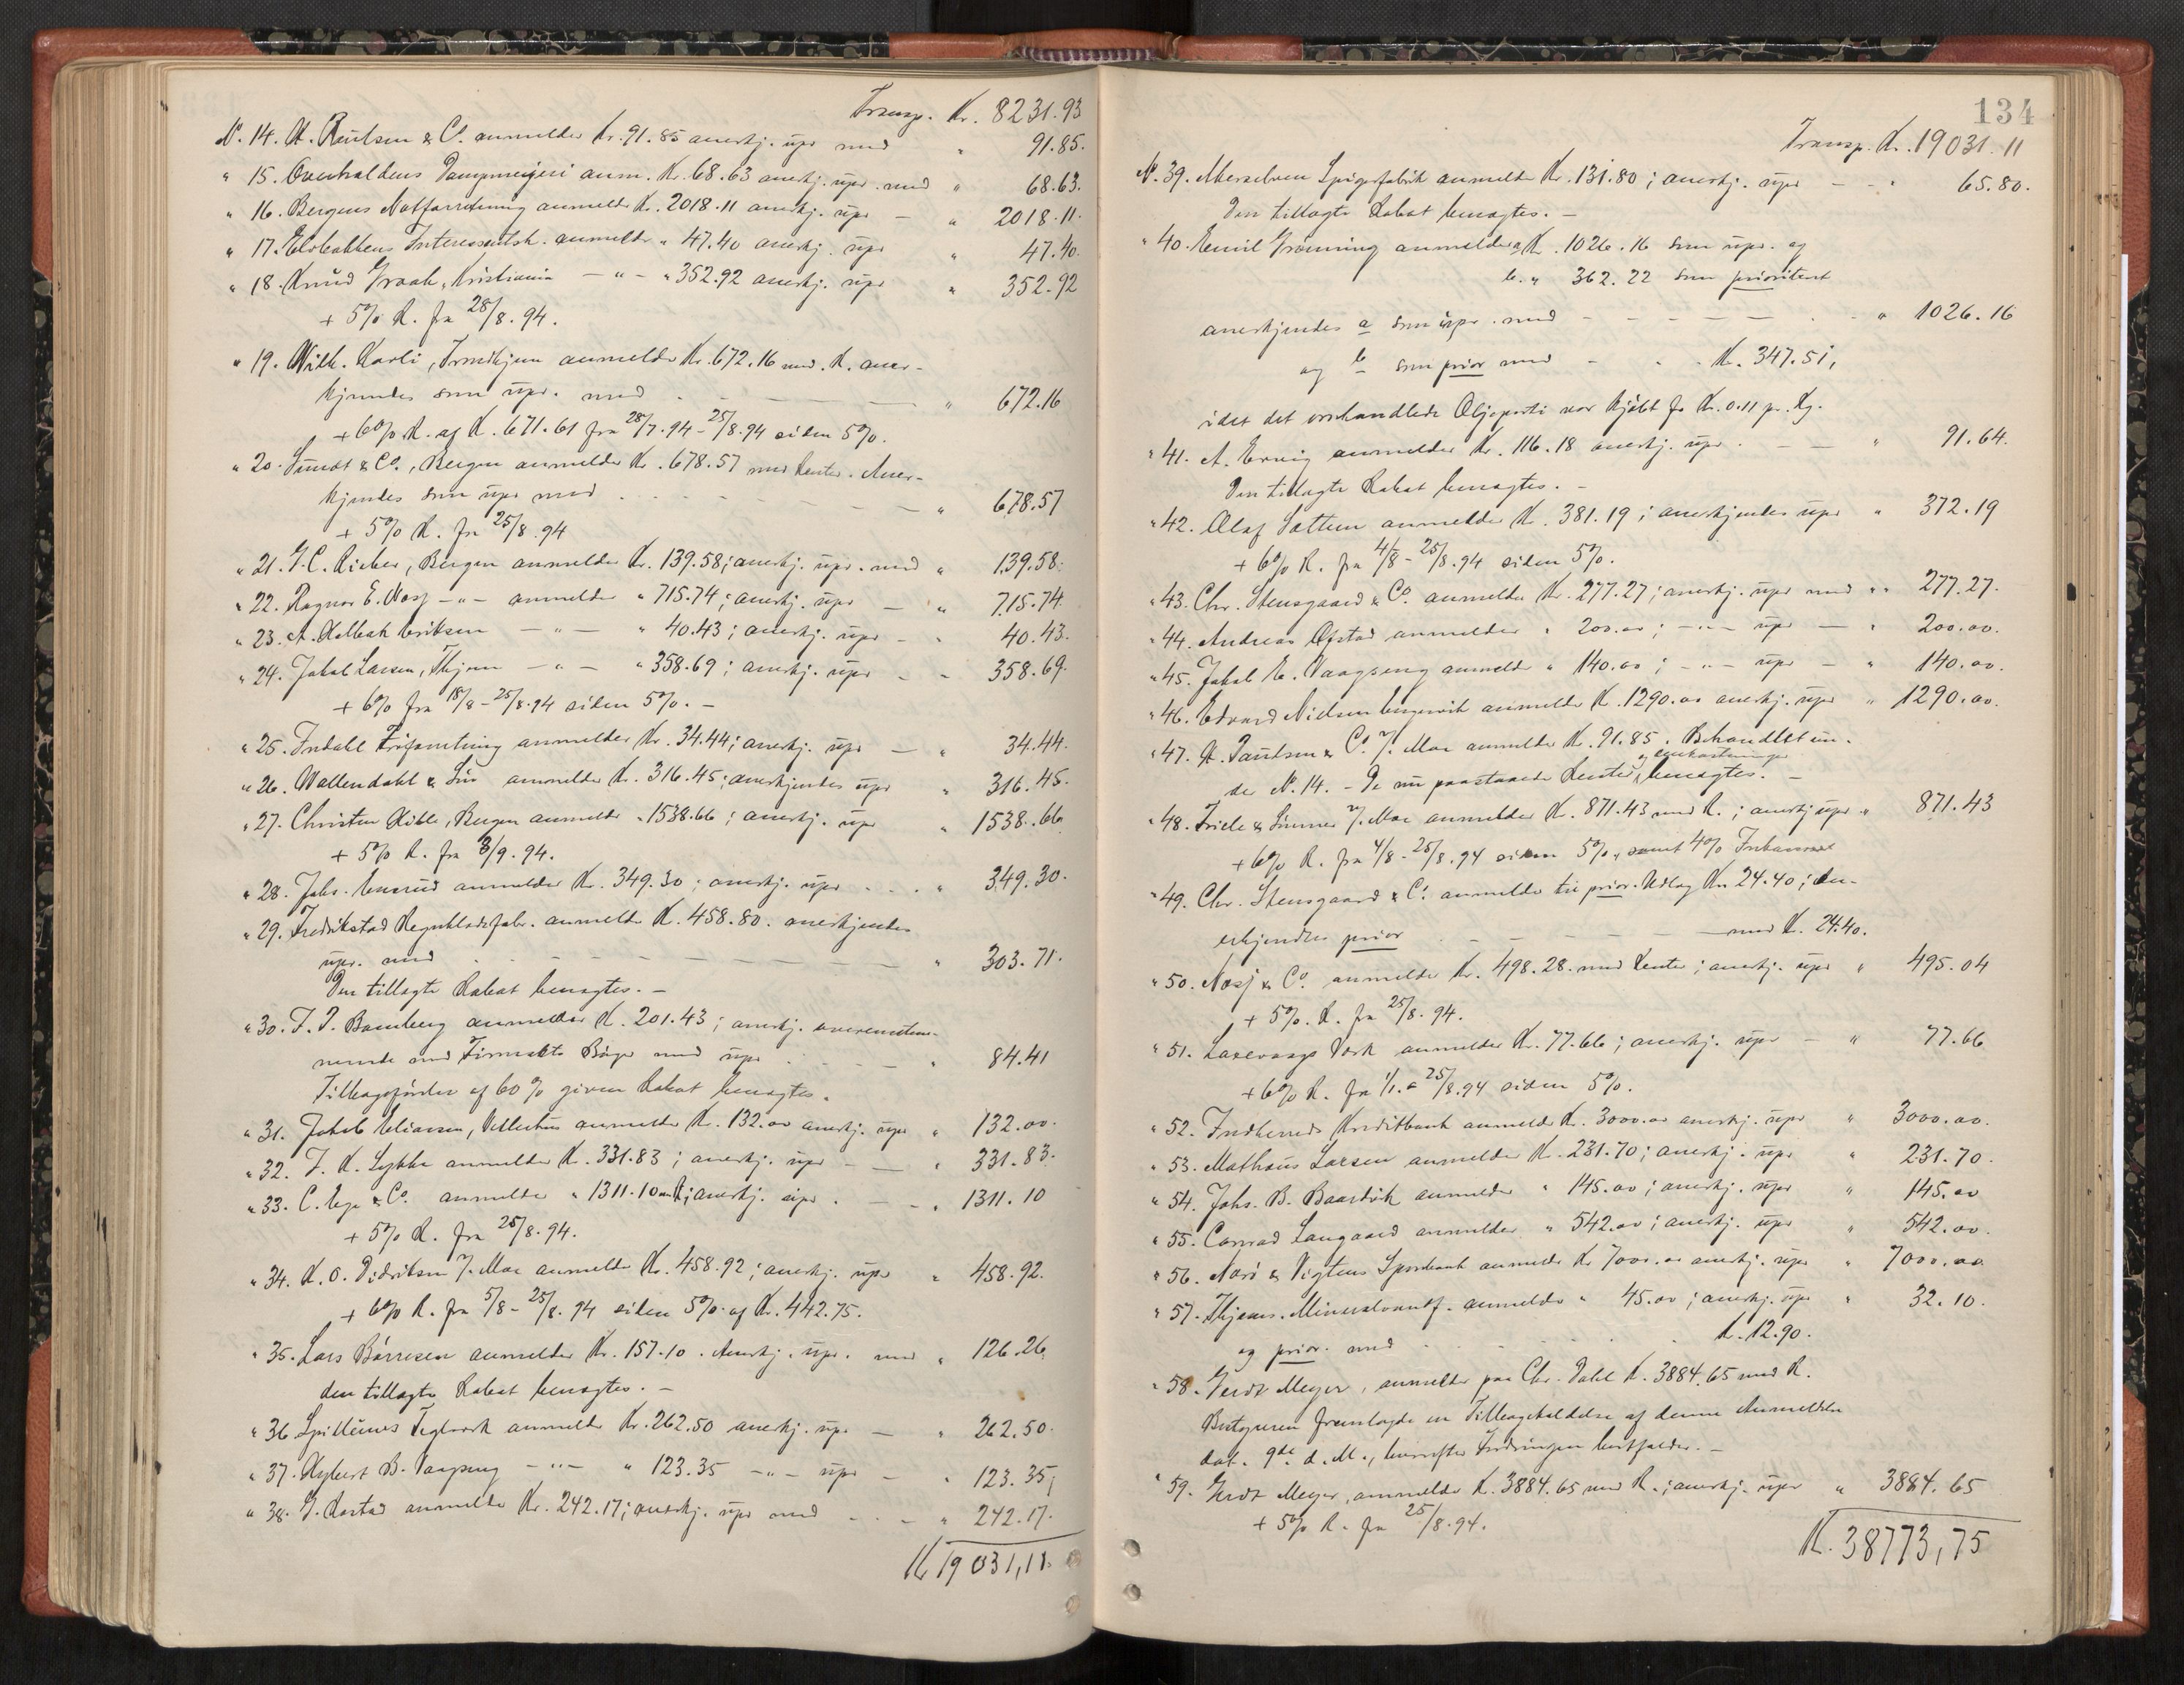 Transp. Kr. 8231.93
N. 14. A. Paulsen & Co. anmelder Kr. 91.85 anerkj. upr med " 91.85.
" 15. Overhaldens Dampmeieri anm. Kr. 68.63 anerkj. upr. med " 68.63.
" 16. Bergens Notforretning anmeldt Kr. 2018.11 anerkj. upr — " 2018.11.
" 17. Interessentsk. anmelder " 47.40 anerkj. upr " 47.40.
" 18. Knud Graah, Kristiania — " — " 352.92 anerkj. upr " 352.92
+ 5% R. fra 25/8. 94.
" 19. Wilh. Karli, Trondhjem anmelder Kr. 672.16 med R. aner-
kjendes som upr. med — " 672.16
+ 6% R. af K. 671.61 fra 28/7.94 - 25/8.94 siden 5%.
" 20. Sundt & Co., Bergen anmelder Kr. 678.57 med Renter. Aner-
kjendes som upr med — " 678.57
+ 5% R. fra 25/8.94
" 21. G. C. Rieber, Bergen anmelder Kr. 139.58; anerkj. upr. med " 139.58.
" 22. Ragnar E. Mosj — " — anmelder " 715.74; anerkj. upr — " 715.74.
" 23. A. Holbek Eriksen — " — " 40.43; anerkj. upr - " 40.43.
" 24. Jakob Larsen, Thjem — " — " 358.69; anerkj. upr - - 358.69.
+ 6% fra 18/8 - 25/8.94 siden 5%. —
" 25. Indahl anmelder Kr. 34.44; anerkj. upr — " 34.44.
" 26. Wallendahl & Søn anmelder Kr. 316.45; anerkjendes upr " 316.45.
" 27. Christen Kible, Bergen anmelder " 1538.66; anerkj. upr " 1538.66
+ 5% R. fra 3/9. 94.
" 28. Johs. anmelder Kr. 349.30; anerkj. upr . . . " 349.30.
" 29. Fredrikstad anmelder K. 458.80. anerkjendes
upr. med — " 303.71.
Den tillagte Rabat benegtes. —
" 30. J. P. Bamberg anmelder K. 201.43; anerkj. overensstem-
mende med Firmaets Bøger med upr — " 84.41
Tilbageførslen af 60% given Rabat benegtes.
" 31. Jakob Eliassen, anmelder Kr. 132.00 anerkj. upr " 132.00.
" 32. J. K. Lykke anmelder K. 331.83; anerkj. upr — " 331.83.
" 33. C. & Co. anmelder " 1311.10 m R; anerkj. upr. — " 1311.10
+ 5% R. fra 25/8.94.
" 34. K. O. Didriksen 7. Mar anmelder Kr. 458.92; anerkj. upr " 458.92.
+ 6% R. fra 5/8 - 25/8. 94 siden 5% af Kr. 442.75.
" 35. Lars Børresen anmelder Kr. 157.10. Anerkj. upr. med " 126.26
den tillagte Rabat benegtes. —
" 36 Spillums Teglverk anmelder Kr. 262.50 anerkj. upr — " 262.50.
" 37. Hybert B. Vaagseng — " — " 123.35 — " — upr - " 123.35,
" 38. G. Rostad anmelder Kr. 242.17; anerkj. upr med . . — " 242.17.
Kr 19 031,11.
134
Transp. Kr. 19031.11
N. 39. Spigerfabrik anmelder Kr. 131.80; anerkj. upr — - " 65.80.
Den tillagte Rabat benegtes. —
" 40. Emil Grønning anmelder a, K. 1026.16 som upr. og
b. " 362.22 som prioritert
anerkjendes a som upr. med - - — — — . - " 1026.16
og b som prior med - . . Kr. 347.51,
idet det omhandlede Oljeparti var kjøbt for Kr. 0.11 pr. Kg.
" 41. A. anmelder Kr. 116.18 anerkj. upr. — — " 91.64.
Den tillagte Rabat benegtes. —
" 42. Olaf Sættem anmelder Kr. 381.19; anerkjendes upr " 372.19
+ 6% R. fra 4/8 - 25/8.94 siden 5%.
" 43. Chr. Stensgaard & Co. anmelder Kr. 277.27; anerkj. upr med " " 277.27.
" 44. Andreas Opstad anmelder " 200.00; — " — upr — " 200.00.
" 45. Jakob E. Vaagseng anmelder " 140.00; — " — upr — " 140.00.
" 46. Edvard Nielsen anmelder K. 1290.00 anerkj. upr " 1290.00.
" 47. A. Paulsen & Co. 7. Mar anmelder Kr. 91.85. Behandlet un-
der N. 14. - De nu paastaaede Renter og Omkostninger benegtes. —
" 48. Friele & 7. Mar anmelder K. 871.43 med R.; anerkj upr " 871.43
+ 6% R. fra 4/8 - 25/8.94 siden 5%, samt 4% Inkasso
" 49. Chr. Stensgaard & Co. anmelder til prior. Udlæg Kr. 24.40; an-
erkjendes prior — — — med K. 24.40.
" 50. Mosj & Co. anmelder Kr. 498.28 med Renter; anerkj. upr " 495.04
+ 5%. R. fra 25/8. 94.
" 51. Laxevaags Værk anmelder Kr. 77.66; anerkj. upr — " 77.66
+ 6% R. fra 1/1. - 25/8.94 siden 5%.
" 52. Indherreds Kreditbank anmelder K. 3000.00 anerkj. upr " 3000.00.
" 53. Mathæus Larsen anmelder Kr. 231.70; anerkj. upr " 231.70.
" 54. Johs. B. Baardvik anmelder " 145.00; anerkj. upr " 145.00
" 55. Conrad Langaard anmelder " 542.00; anerkj. upr " 542.00.
" 56. Nærø & Vigtens Sparebank anmelder Kr 7000.00 anerkj. upr " 7000.00.
" 57. Thjems. Mineralvandf. anmelder " 45.00; anerkj. upr " 32.10.
og prior. med . . . . K. 12.90.
" 58. Gerdt Meyer, anmelder paa Chr. Dahl K. 3884.65 med R.
Bestyreren fremlagde en Tilbagekaldelse af denne Anmeldelse
dat. 9de d. M., hvorefter Fordringen bortfalder. —
" 59. Gerdt Meyer, anmelder K. 3884.65 med R.; anerkj. upr " 3884.65
+ 5% R. fra 25/8.94.
K. 38773,75